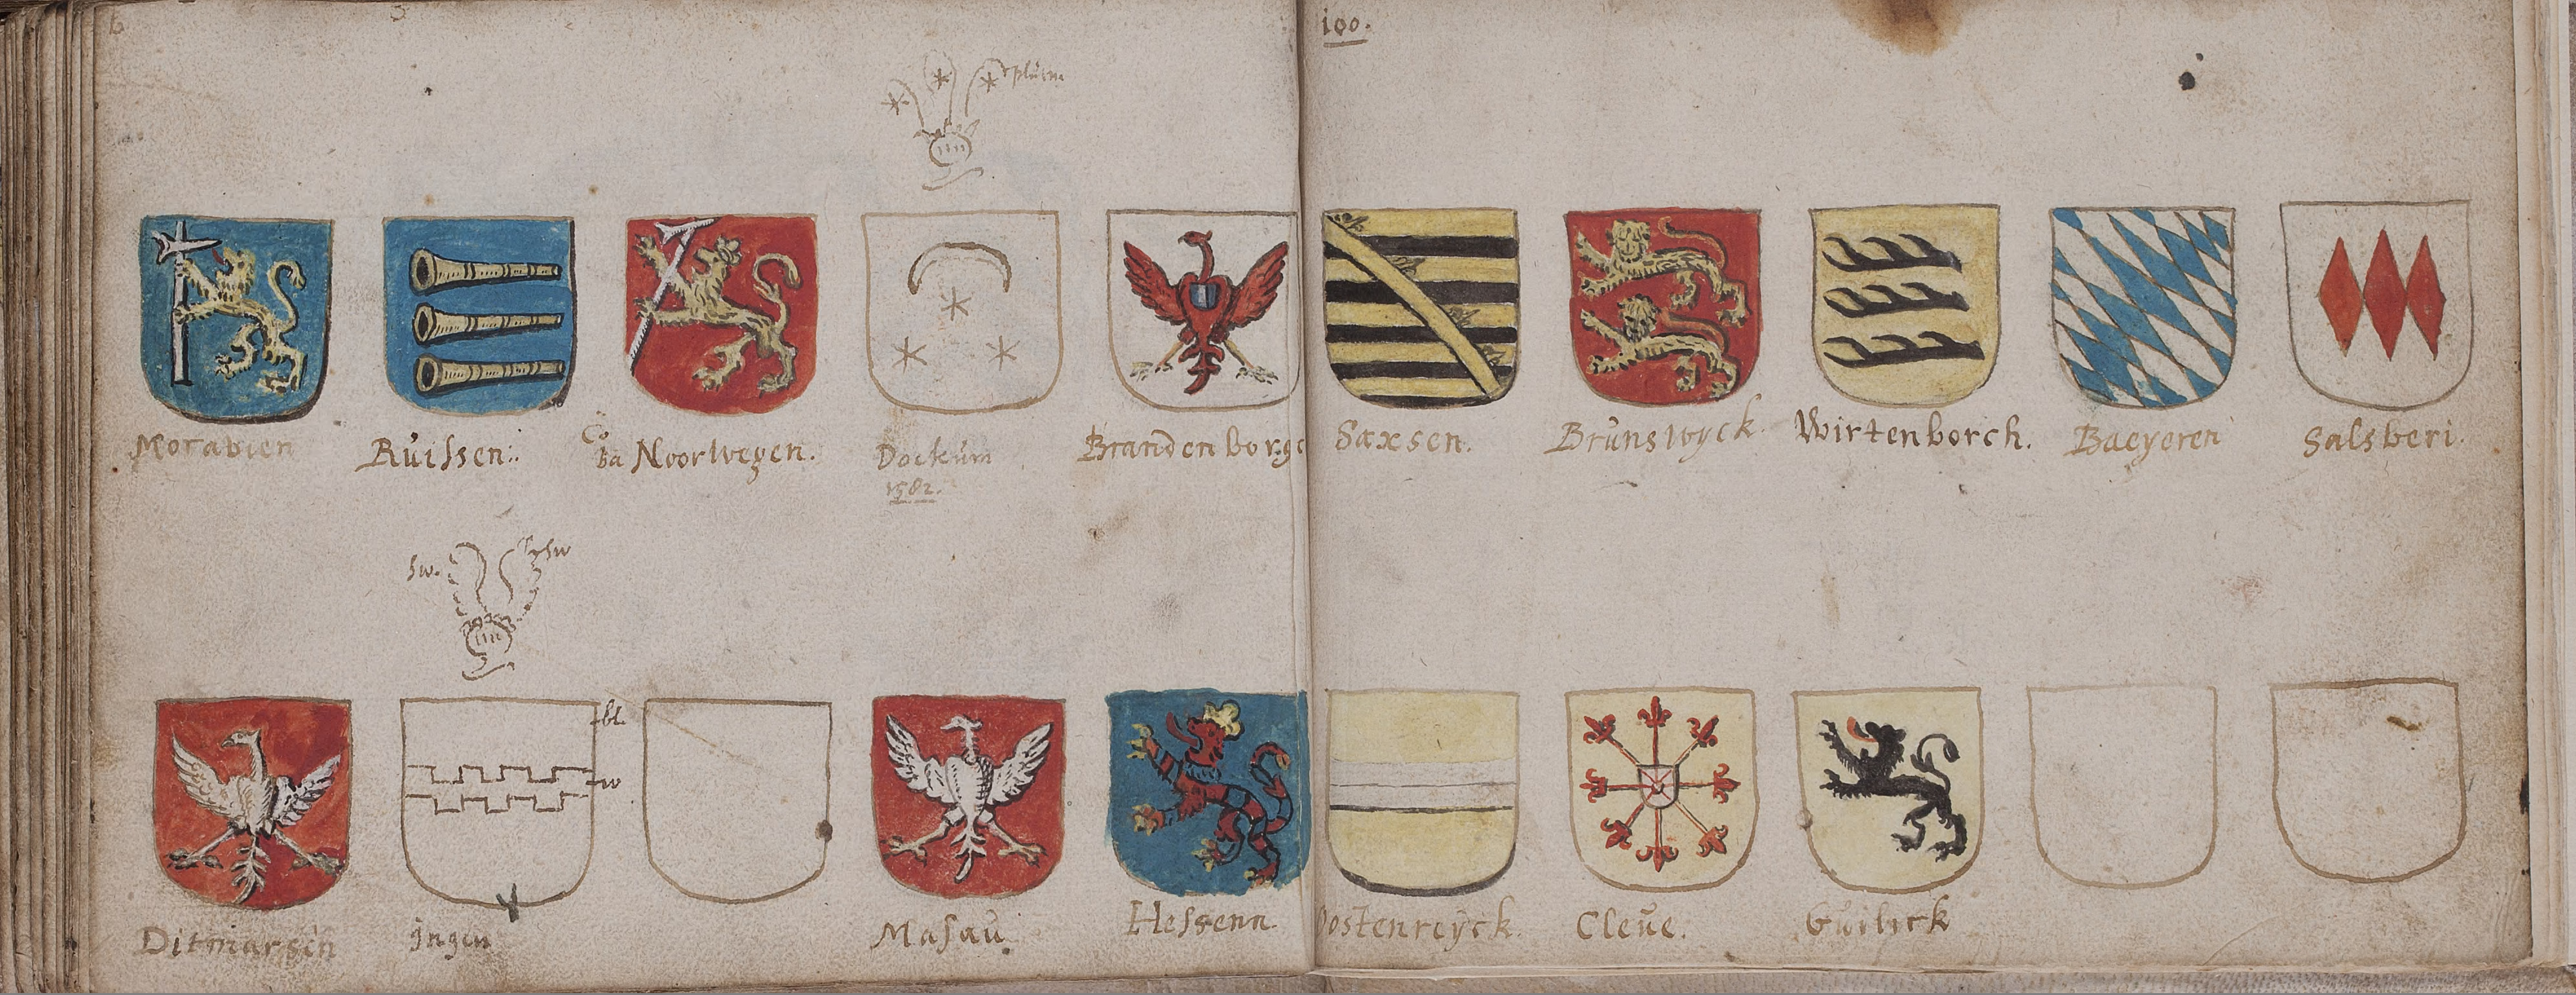 100.
plum
Moravien
Ruissen:
Co
Ba Noorwegen.
Dockum
1582.
Brandenborge
Saxsen.
Brunswyck.
Wirtenborch.
Baeyeren
Salsberi.
sw. sw
bl.
w
Ditmarsen
Ingen
Masau.
Hessenn
Oostenreyck.
Cleve.
Guilick